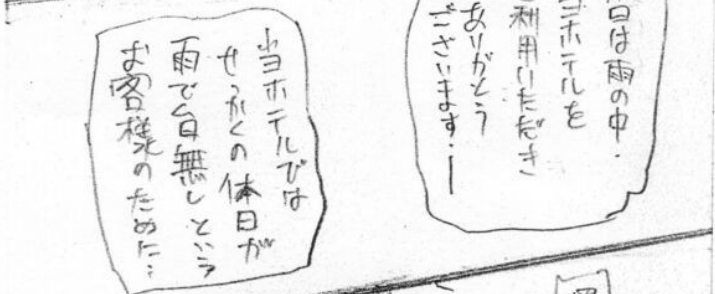 日は雨の中・
当ホテルを
ご利用いただき
ありがとう
ございます・ー
当ホテルでは
せっかくの休日が
雨で台無しという
お客様のために…